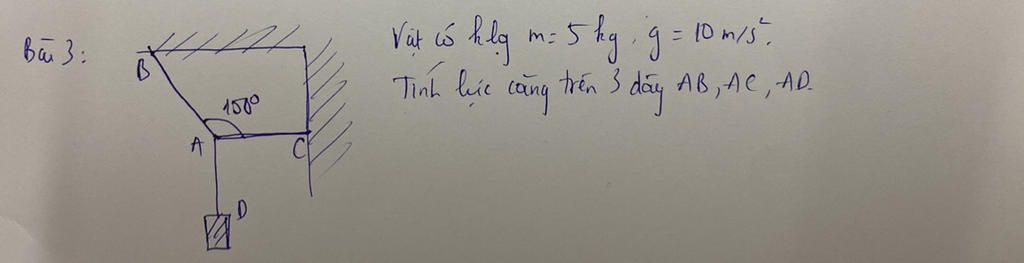 Bài 3:
Vật có klg m = 5 kg, g = 10 m/s².
Tính lực căng trên 3 dây AB, AC, AD.
B
150°
A
C
D